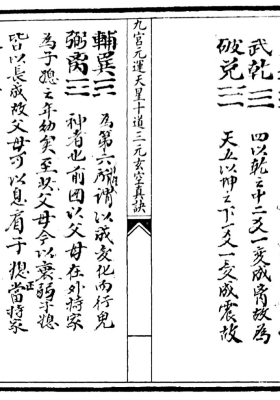 武乾☰ 四以乾之中二爻一变成肾故為
破兑☱ 天五以坤之下一爻一变成震故
九宫元運天星十道三元玄空真訣
輔巽☴ 為第六所謂以成变化而行鬼
弼离☲ 神者也前图以父母在外持家
為子媳之年幼矣至此父母令以衰弱子媳
皆以長成故父母可以息肩子媳正當持家